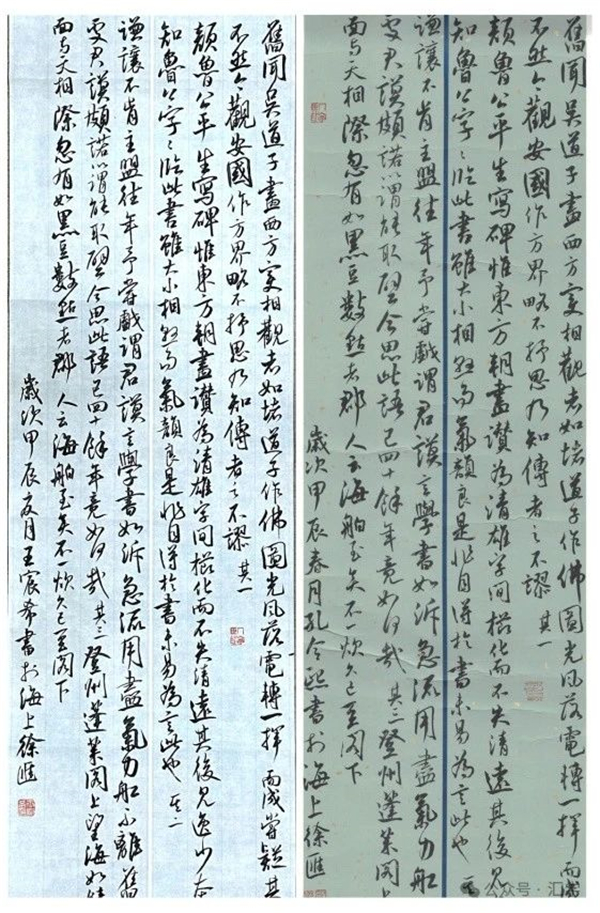 舊聞吴道子畫西方变相觀者如堵道子作佛圖光风落電轉一揮而成嘗疑其
不然今觀安國作方界略不抒思乃知傳者之不謬 其一
顔魯公平生寫碑惟東方朔畫讚為清雄字間櫛比而不失清遠其後見逸少本
知魯公字〻临此書雖大小相懸而氣韻良是非自得於書未易為言此也 其二
謙讓不肯主盟往年予嘗戲謂君謨言學書如泝急流用盡氣力船不離舊
處君謨頗諾以謂能取譬今思此語已四十餘年竟如何哉 其三 登州蓬莱阁上望海如镜
面与天相際忽有如黑豆數点者郡人云海舶至矣不一炊久已至阁下
歲次甲辰夏月王宸希書於海上徐滙
舊聞吴道子畫西方变相觀者如堵道子作佛圖光风落電轉一揮而成
不然今觀安國作方界略不抒思乃知傳者之不謬 其一
顔魯公平生寫碑惟東方朔畫讚為清雄字間櫛比而不失清遠其後見
知魯公字〻临此書雖大小相懸而氣韻良是非自得於書未易為言此也 其
謙讓不肯主盟往年予嘗戲謂君謨言學書如泝急流用盡氣力船
處君謨頗諾以謂能取譬今思此語已四十餘年竟如何哉 其三 登州蓬莱阁上
面与天相際忽有如黑豆數点者郡人云海舶至矣不一炊久已至阁下
歲次甲辰春月孔令熙書於海上徐滙
公众号·汇